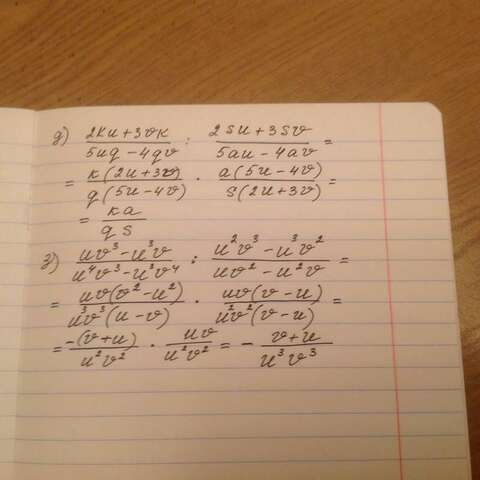 д) (2ku+3vk)/(5uq-4qv) : (2su+3sv)/(5au-4av) =
= k(2u+3v)/q(5u-4v) · a(5u-4v)/s(2u+3v) =
= ka/qs
з) (uv³-u³v)/(u⁴v³-u³v⁴) : (u²v³-u³v²)/(uv²-u²v) =
= uv(v²-u²)/u³v³(u-v) · uv(v-u)/u²v²(v-u) =
= -(v+u)/u²v² · uv/u²v² = - (v+u)/u³v³